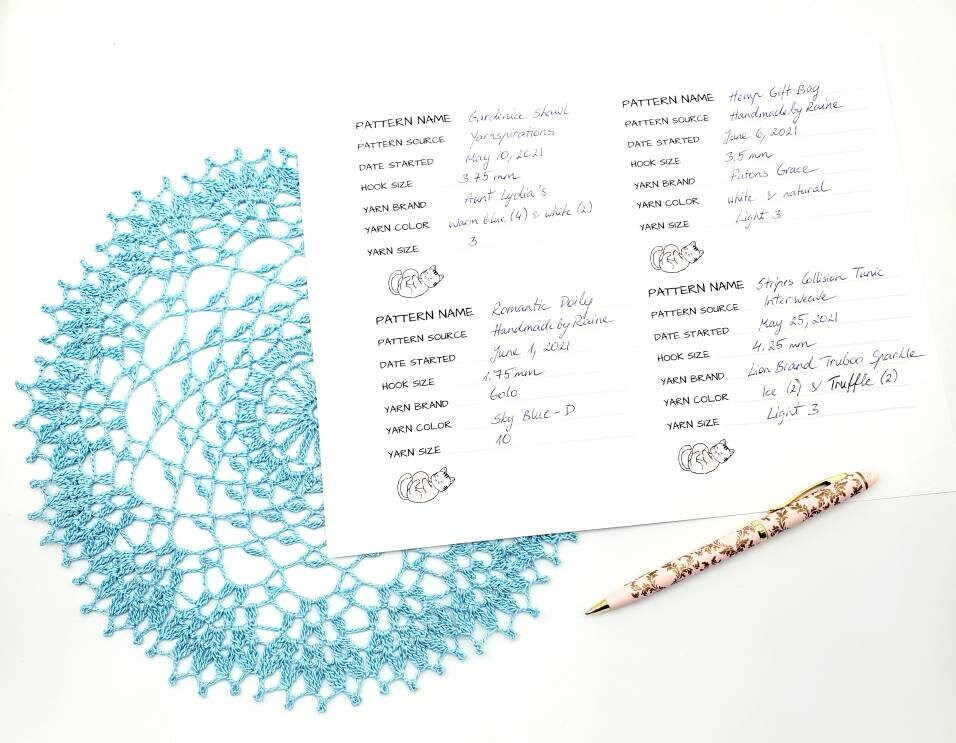 PATTERN NAME Gardenia Shawl
PATTERN SOURCE Yarnspirations
DATE STARTED May 10, 2021
HOOK SIZE 3.75 mm
YARN BRAND Aunt Lydia's
YARN COLOR Warm blue (4) & white (2)
YARN SIZE 3
PATTERN NAME Hemp Gift Bag
PATTERN SOURCE Handmade by Raine
DATE STARTED June 6, 2021
HOOK SIZE 3.5 mm
YARN BRAND Patons Grace
YARN COLOR white & natural
YARN SIZE Light 3
PATTERN NAME Romantic Doily
PATTERN SOURCE Handmade by Raine
DATE STARTED June 1, 2021
HOOK SIZE 1.75 mm
YARN BRAND Golo
YARN COLOR Sky Blue-D
YARN SIZE 10
PATTERN NAME Stripes Collision Tunic
PATTERN SOURCE Interweave
DATE STARTED May 25, 2021
HOOK SIZE 4.25 mm
YARN BRAND Lion Brand Truboo Sparkle
YARN COLOR Ice (2) & Truffle (2)
YARN SIZE Light 3